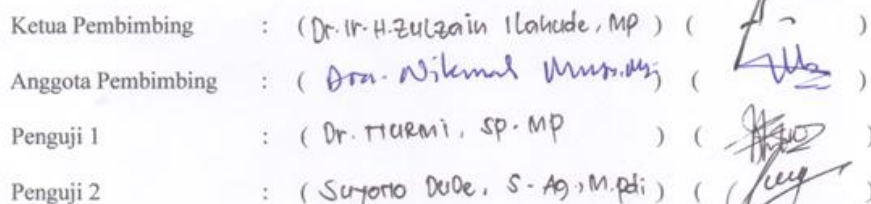 Ketua Pembimbing : (Dr. Ir. H. Zulzain Ilahude, MP) ( )
Anggota Pembimbing : ( Dra. Nikmah Musa, Msi) ( )
Penguji 1 : ( Dr. Nurmi, SP. MP ) ( )
Penguji 2 : ( Suyono Dude, S. Ag, M.pdi) ( )